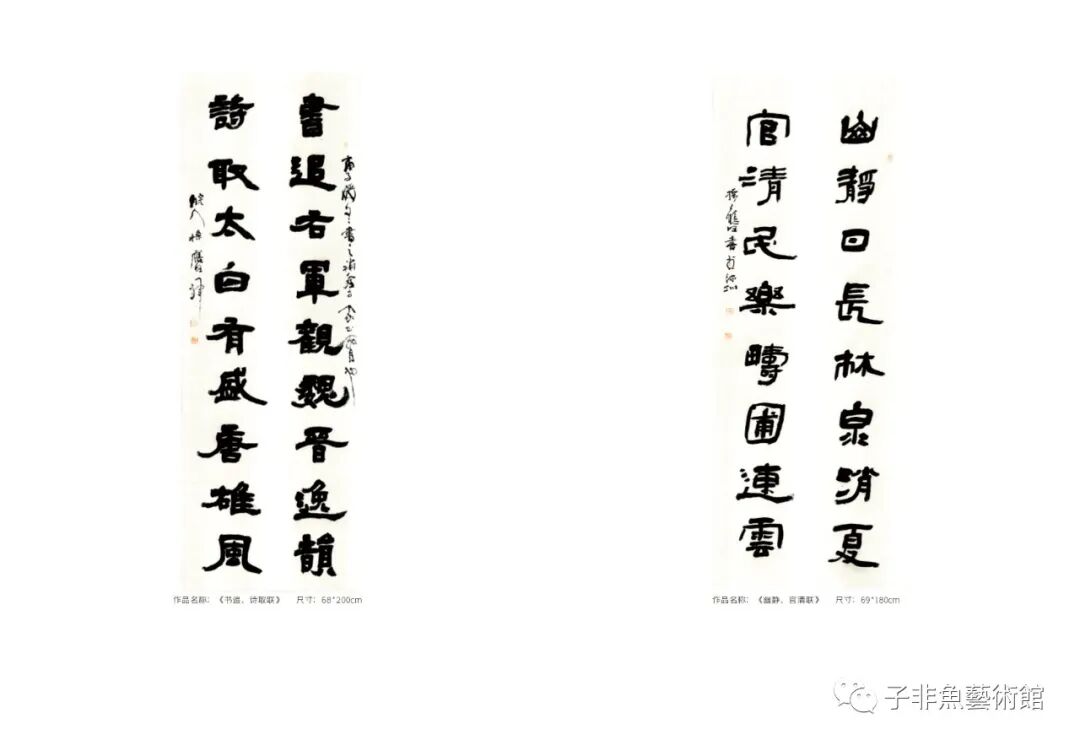 書追右軍觀魏晉逸韻
詩取太白有盛唐雄風
作品名称：《书追、诗取联》 尺寸：68*200cm
幽靜日長林泉消夏
官清民樂疇圃連雲
作品名称：《幽静、官清联》 尺寸：69*180cm
子非魚藝術館